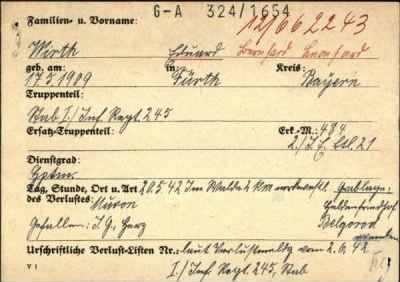 G-A 324/1654
12/662243
Familien- u. Vorname:
Wirth Eduard Bernhard Leonhard
geb. am: in: Kreis:
17.5.1909 Fürth Bayern
Truppenteil:
Stab I./Inf. Regt. 245
Ersatz-Truppenteil: Erk.-M.: 484
2./J. E. Btl. 21
Dienstgrad:
Hptm.
Tag, Stunde, Ort u. Art 20.5.42 Im Walde 2 km nordwestl.
des Verlustes: Heldenfriedhof
Gefallen: I.G. Herz Belgorod
Urschriftliche Verlust-Listen Nr.: laut Verlustmeldg vom 2.6.42
I./Inf. Regt. 245, Stab
V 1